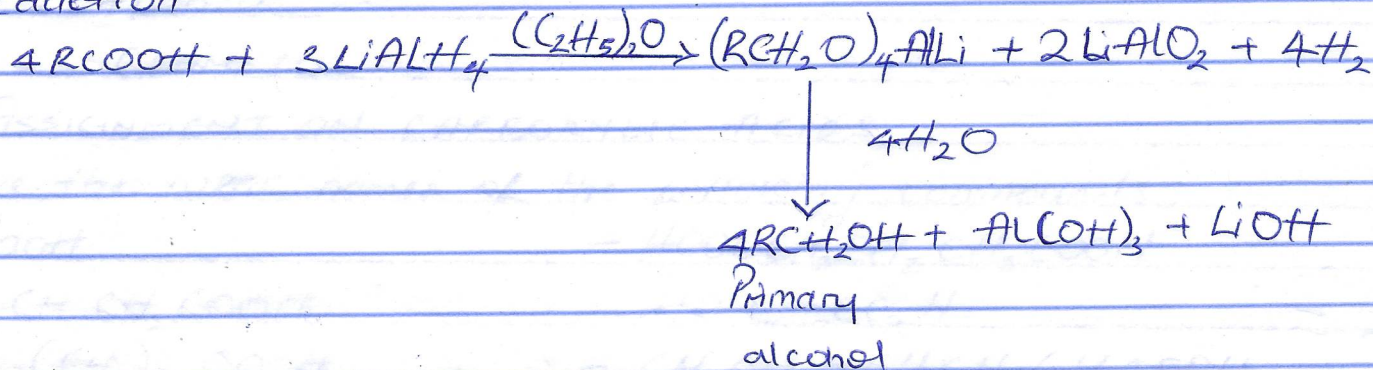 4RCOOH + 3LiALH₄ (C₂H₅)₂O → (RCH₂O)₄AlLi + 2LiAlO₂ + 4H₂
↓ 4H₂O
4RCH₂OH + AL(OH)₃ + LiOH
Primary
alcohol